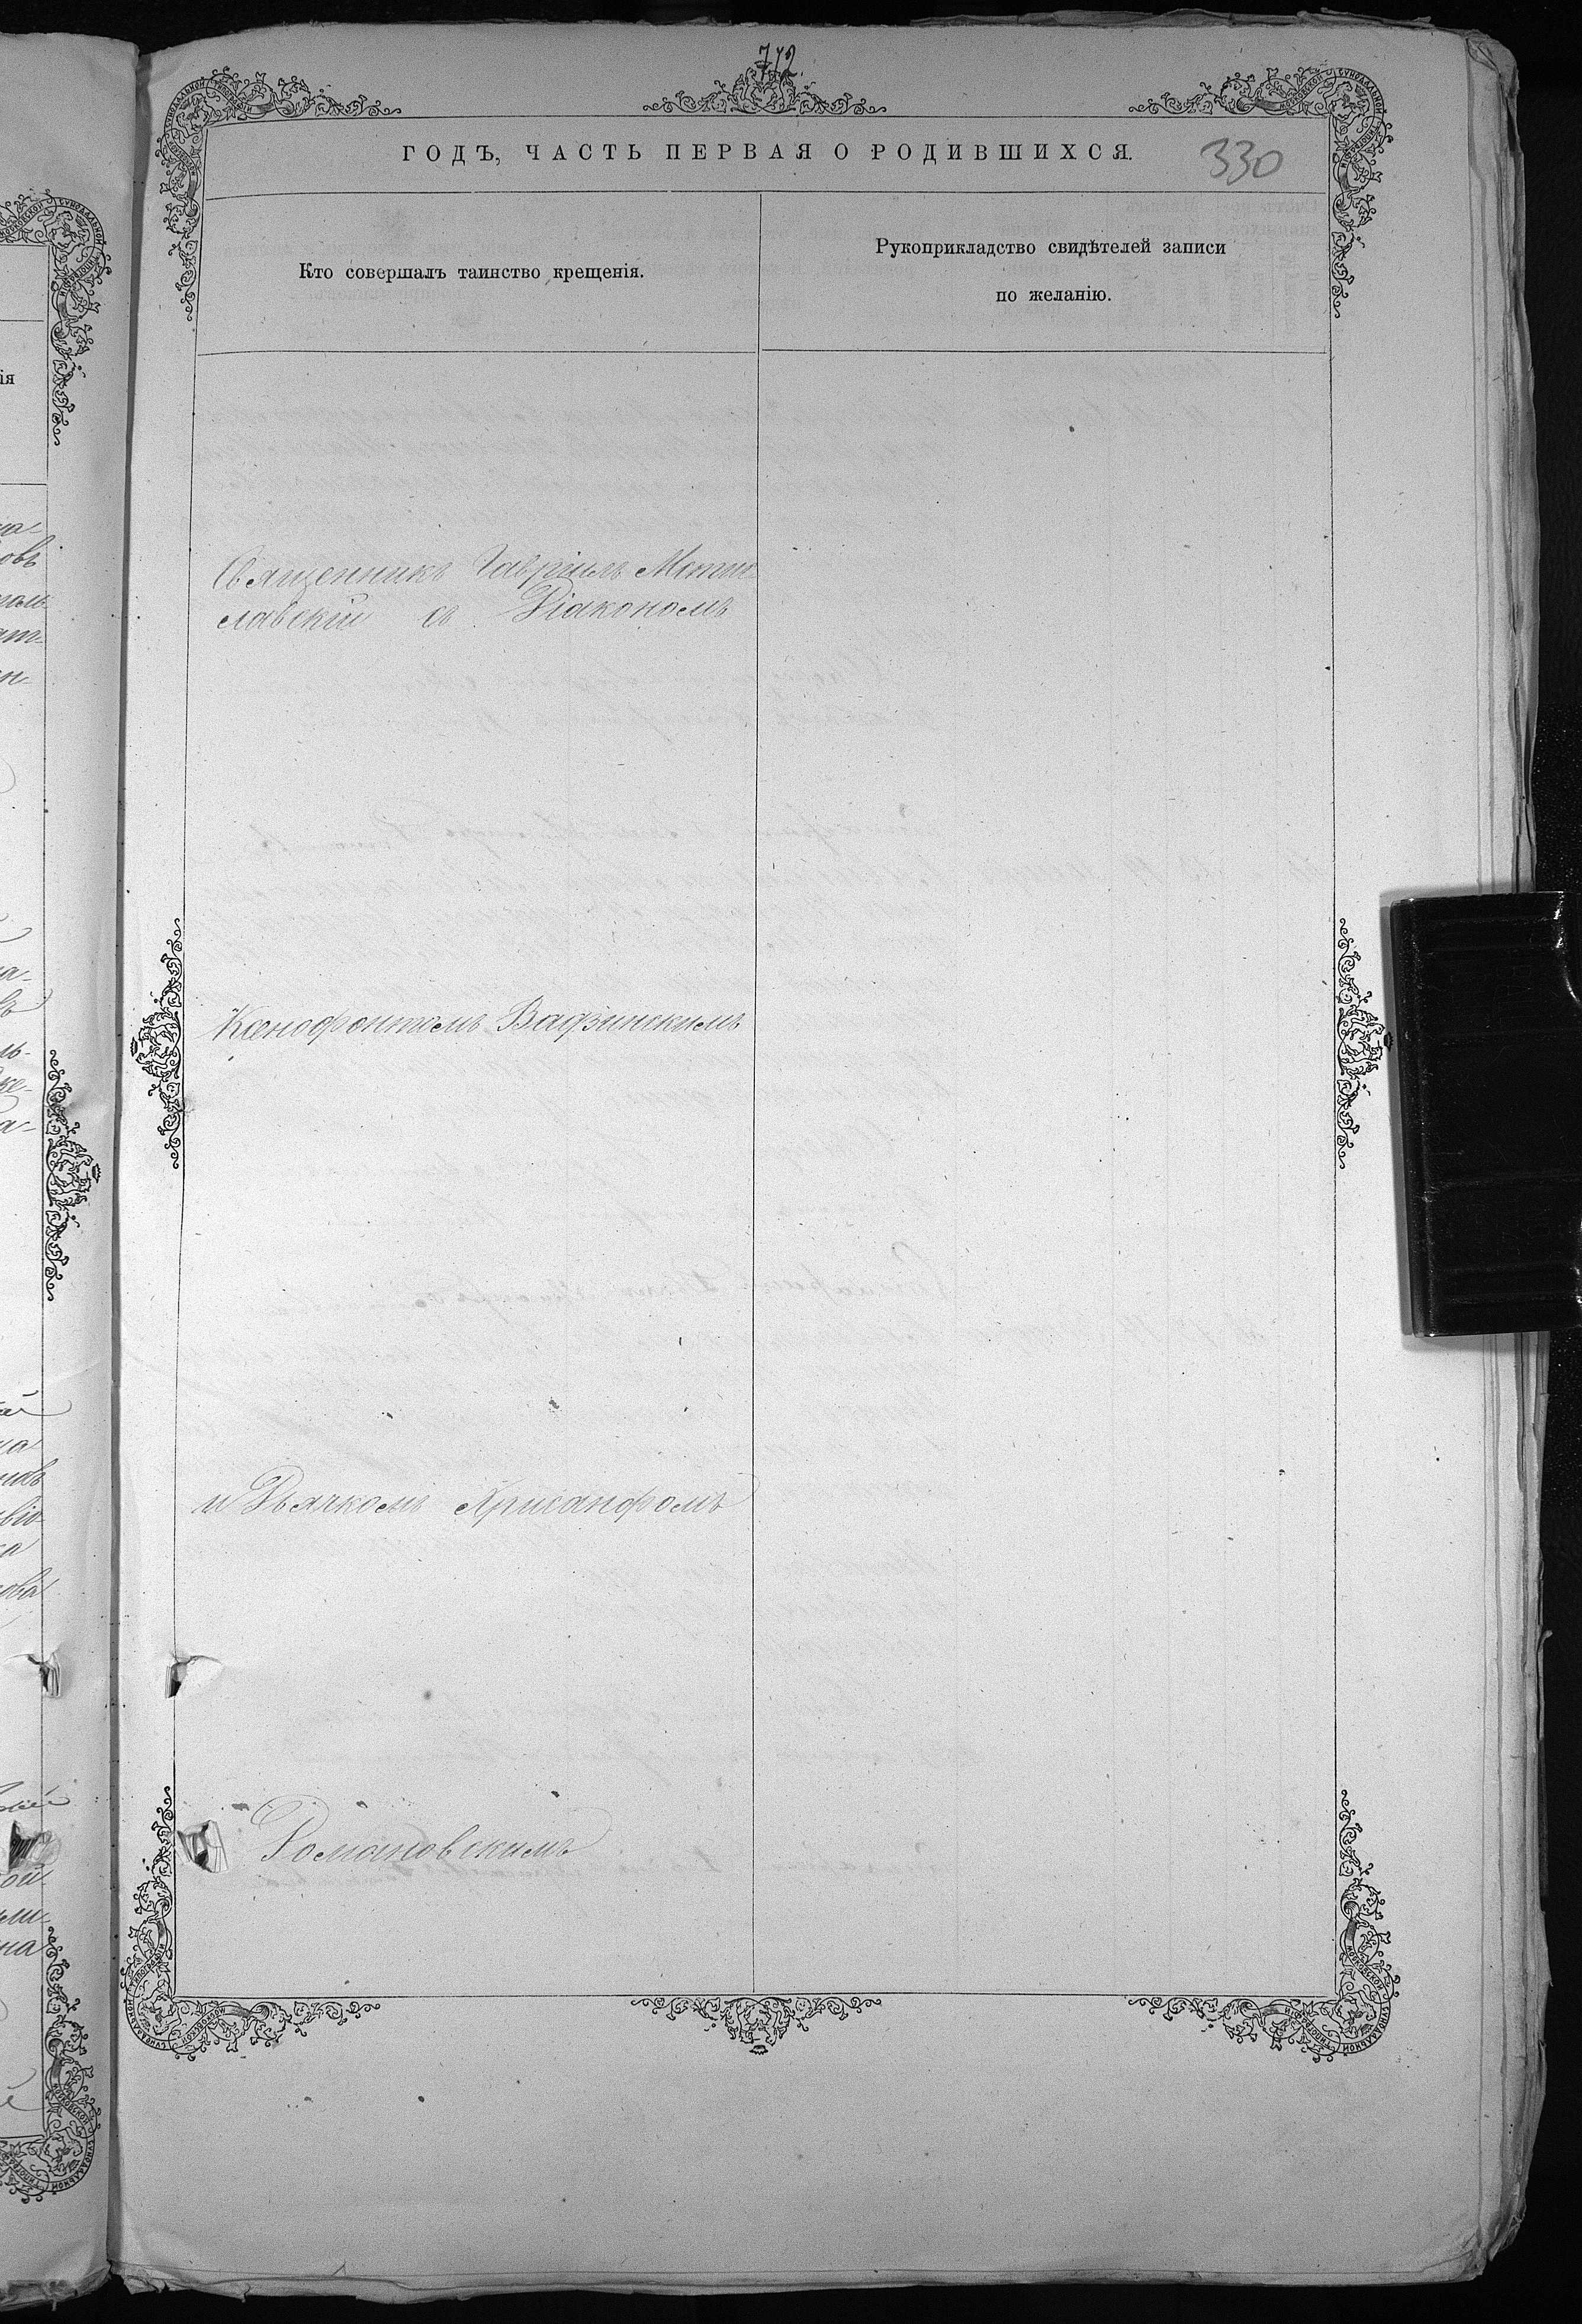 712.
ГОДЪ, ЧАСТЬ ПЕРВАЯ О РОДИВШИХСЯ.
330
Кто совершалъ таинство крещенія.
Рукоприкладство свидѣтелей записи
по желанію.
Священникъ Гавріилъ Мсти-
славскій съ Діакономъ
Ксенофонтомъ Вадзинскимъ
и Дьячкомъ Хрисанфомъ
Романовскимъ